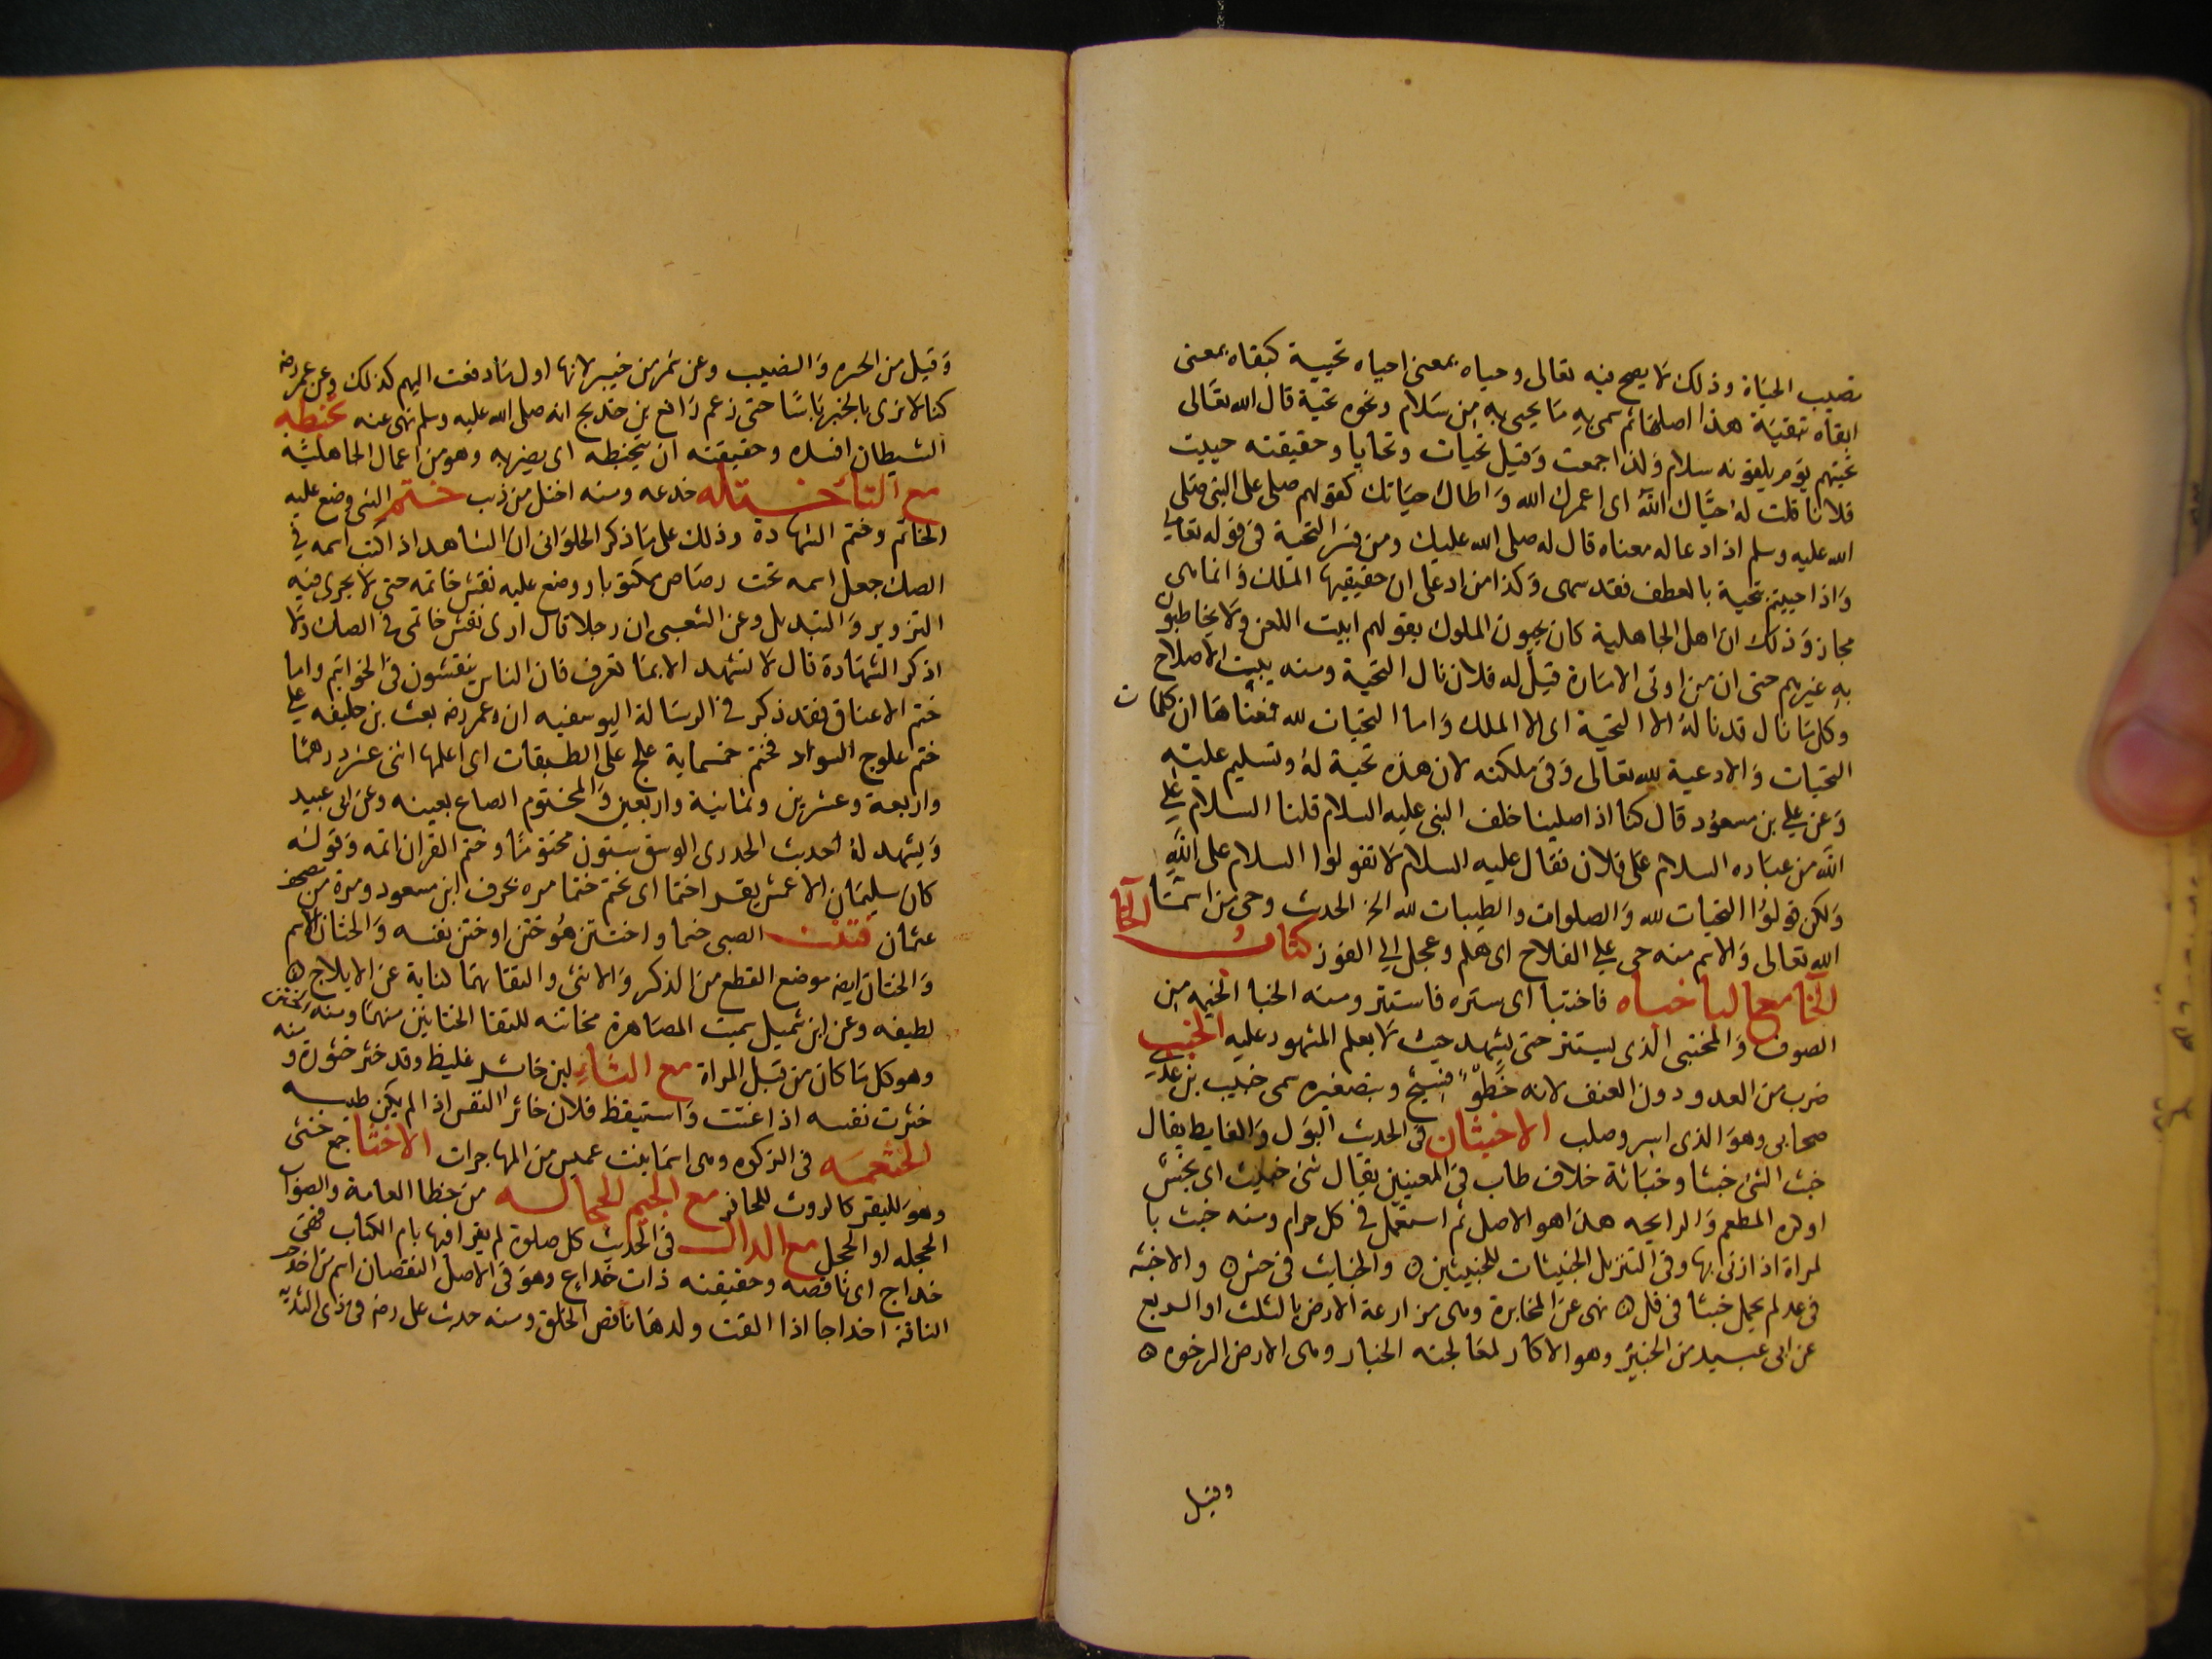 نصيب الحياة وذلك لا يصح فيه تعالى وحياه بمعنى احياه تحيية كبقاه بمعنى
ابقاه تبقية هذا اصلها ثم سمى به ما يحيى به من سلام ونحوه تحية قال الله تعالى
تحيتهم يوم يلقونه سلام ولذا جمعت وقيل تحيات وتحايا وحقيقته حييت
فلانا قلت له حياك الله اى اعمرك الله واطال حياتك كقولهم صلى على النبى صلى
الله عليه وسلم اذا دعا له معناه قال له صلى الله عليك ومن فسر التحية فى قوله تعالى
واذا حييتم بتحية بالعطف فقد سمى وكذا من ادعى ان حقيقتها الملك وانما هى
مجاز وذلك ان اهل الجاهلية كان يحيون الملوك بقولهم ابيت اللعن ولا يخاطبون
به غيرهم حتى ان من اوتى الامارة قيل له فلان نال التحية ومنه بيت الاصلاح
وكل ما نال قد نالهُ الا التحية اى الا الملك واما التحيات لله فمعناها ان كلمات
التحيات والادعية لله تعالى وفى ملكته لان هذه تحية له وتسليم عليه
وعن على بن مسعود قال كنا اذا صلينا خلف النبى عليه السلام قلنا السلام على
الله من عباده السلام على فلان فقال عليه السلام لا تقولوا السلام على الله
ولكن قولوا التحيات لله والصلوات والطيبات لله الخ الحديث وحى من اسمآ
الله تعالى والاسم منه حى على الفلاح اى هلم وعجل الى الفوز كتاب الخآ
الخآ مع البا خباه فاختبا اى ستره فاستتر ومنه الخبا الخيمه من
الصوف والمختبى الذى يستتر حتى يشهد حيث لا يعلم المشهود عليه الخبب
ضرب من العدو دون العنف لانه خطوٌ فسيح وبتصغيره سمى خبيب بن عدى
صحابى وهو الذى اسر وصلب الاخبثان فى الحديث البول والغايط يقال
خبث الشئ خبثا وخباثة خلاف طاب فى المعنيين يقال شئ خبيث اى نجس
او كره المطعم والرايحه هذا هو الاصل ثم استعمل فى كل حرام ومنه خبث با
لمراة اذا زنى بها وفى التنزيل الخبيثات للخبيثين والخبايث فى حش والاخبثه
فى عد لم يحمل خبثا فى قل نهى عن المخابرة وهى مزارعة الارض بالثلث او الربع
عن ابى عبيد من الخبير وهو الاكار لمعالجته الخبار وهى الارض الرخوه
وقيل
وقيل من الخبره والنصيب وعن شمر من خيبر لانها اول ما دفعت اليهم كذلك وعن عمر رضه
كنا لا نرى بالخبر باسا حتى زعم رافع بن خديج انه صلى الله عليه وسلم نهى عنه تخبطه
الشيطان افسده وحقيقته ان يتخبطه اى يضربه وهو من اعمال الجاهلية
مع التآ ختله خدعه ومنه اختل من ذيب ختم الشى وضع عليه
الخاتم وختم الشهادة وذلك على ما ذكر الحلوانى ان الشاهد اذا كتب اسمه فى
الصك جعل اسمه تحت رصاص مكتوبا ووضع عليه نقش خاتمه حتى لا يجرى فيه
التزوير والتبديل وعن الشعبى ان رجلا قال ارى نقش خاتمى فى الصك ولا
اذكر الشهادة قال لا تشهد الا بما تعرف فان الناس ينقشون فى الخواتيم واما
ختم الاعناق فقد ذكر فى الرسالة اليوسفيه ان عمر رضه بعث بن حليفه على
ختم علوج السواد فختم خمسماية علج على الطبقات اى اعلمها اثنى عشر درهما
واربعة وعشرين وثمانية واربعين والمختوم الصاع بعينه وعن ابى عبيد
ويشهد له احديث الخدرى الوسق ستون مختوما وختم القران اتمه وقوله
كان سليمان الاعمش يقر اختما اى يختم ختما مره بحرف ابن مسعود ومرة من مصحف
عثمان ختن الصبى ختما واختتن هو ختن او ختن نفسه والختان الاسم
والختان ايض موضع القطع من الذكر والانثى والتقا بهما كناية عن الايلاج
لطيفه وعن ابن شميل سميت المصاهرة مخاتنه لالتقا الختانين منهما ومنه الختن
وهو كل ما كان من قبل المراة مع الثاء لبن خاثر غليظ وقد خثر خثورة ومنه
خثرت نفسه اذا غثت واستيقظ فلان خاثر النفس اذا لم يكن طيبه
الخثعميه فى الزكوه وهى اسما بنت عميس من المهاجرات الاخثا جمع خثى
وهو للبقر كالروث للحافر مع الجيم الخجاله من خطا العامة والصواب
الخجله او الخجل مع الدال فى الحديث كل صلوة لم يقرا فيها بام الكتاب فهى
خداج اى ناقصه وحقيقته ذات خداع وهو فى الاصل النقصان اسم من اخدجت
الناقة اخداجا اذا القت ولدها ناقص الخلق ومنه حديث على رضه فى ذى الثديه